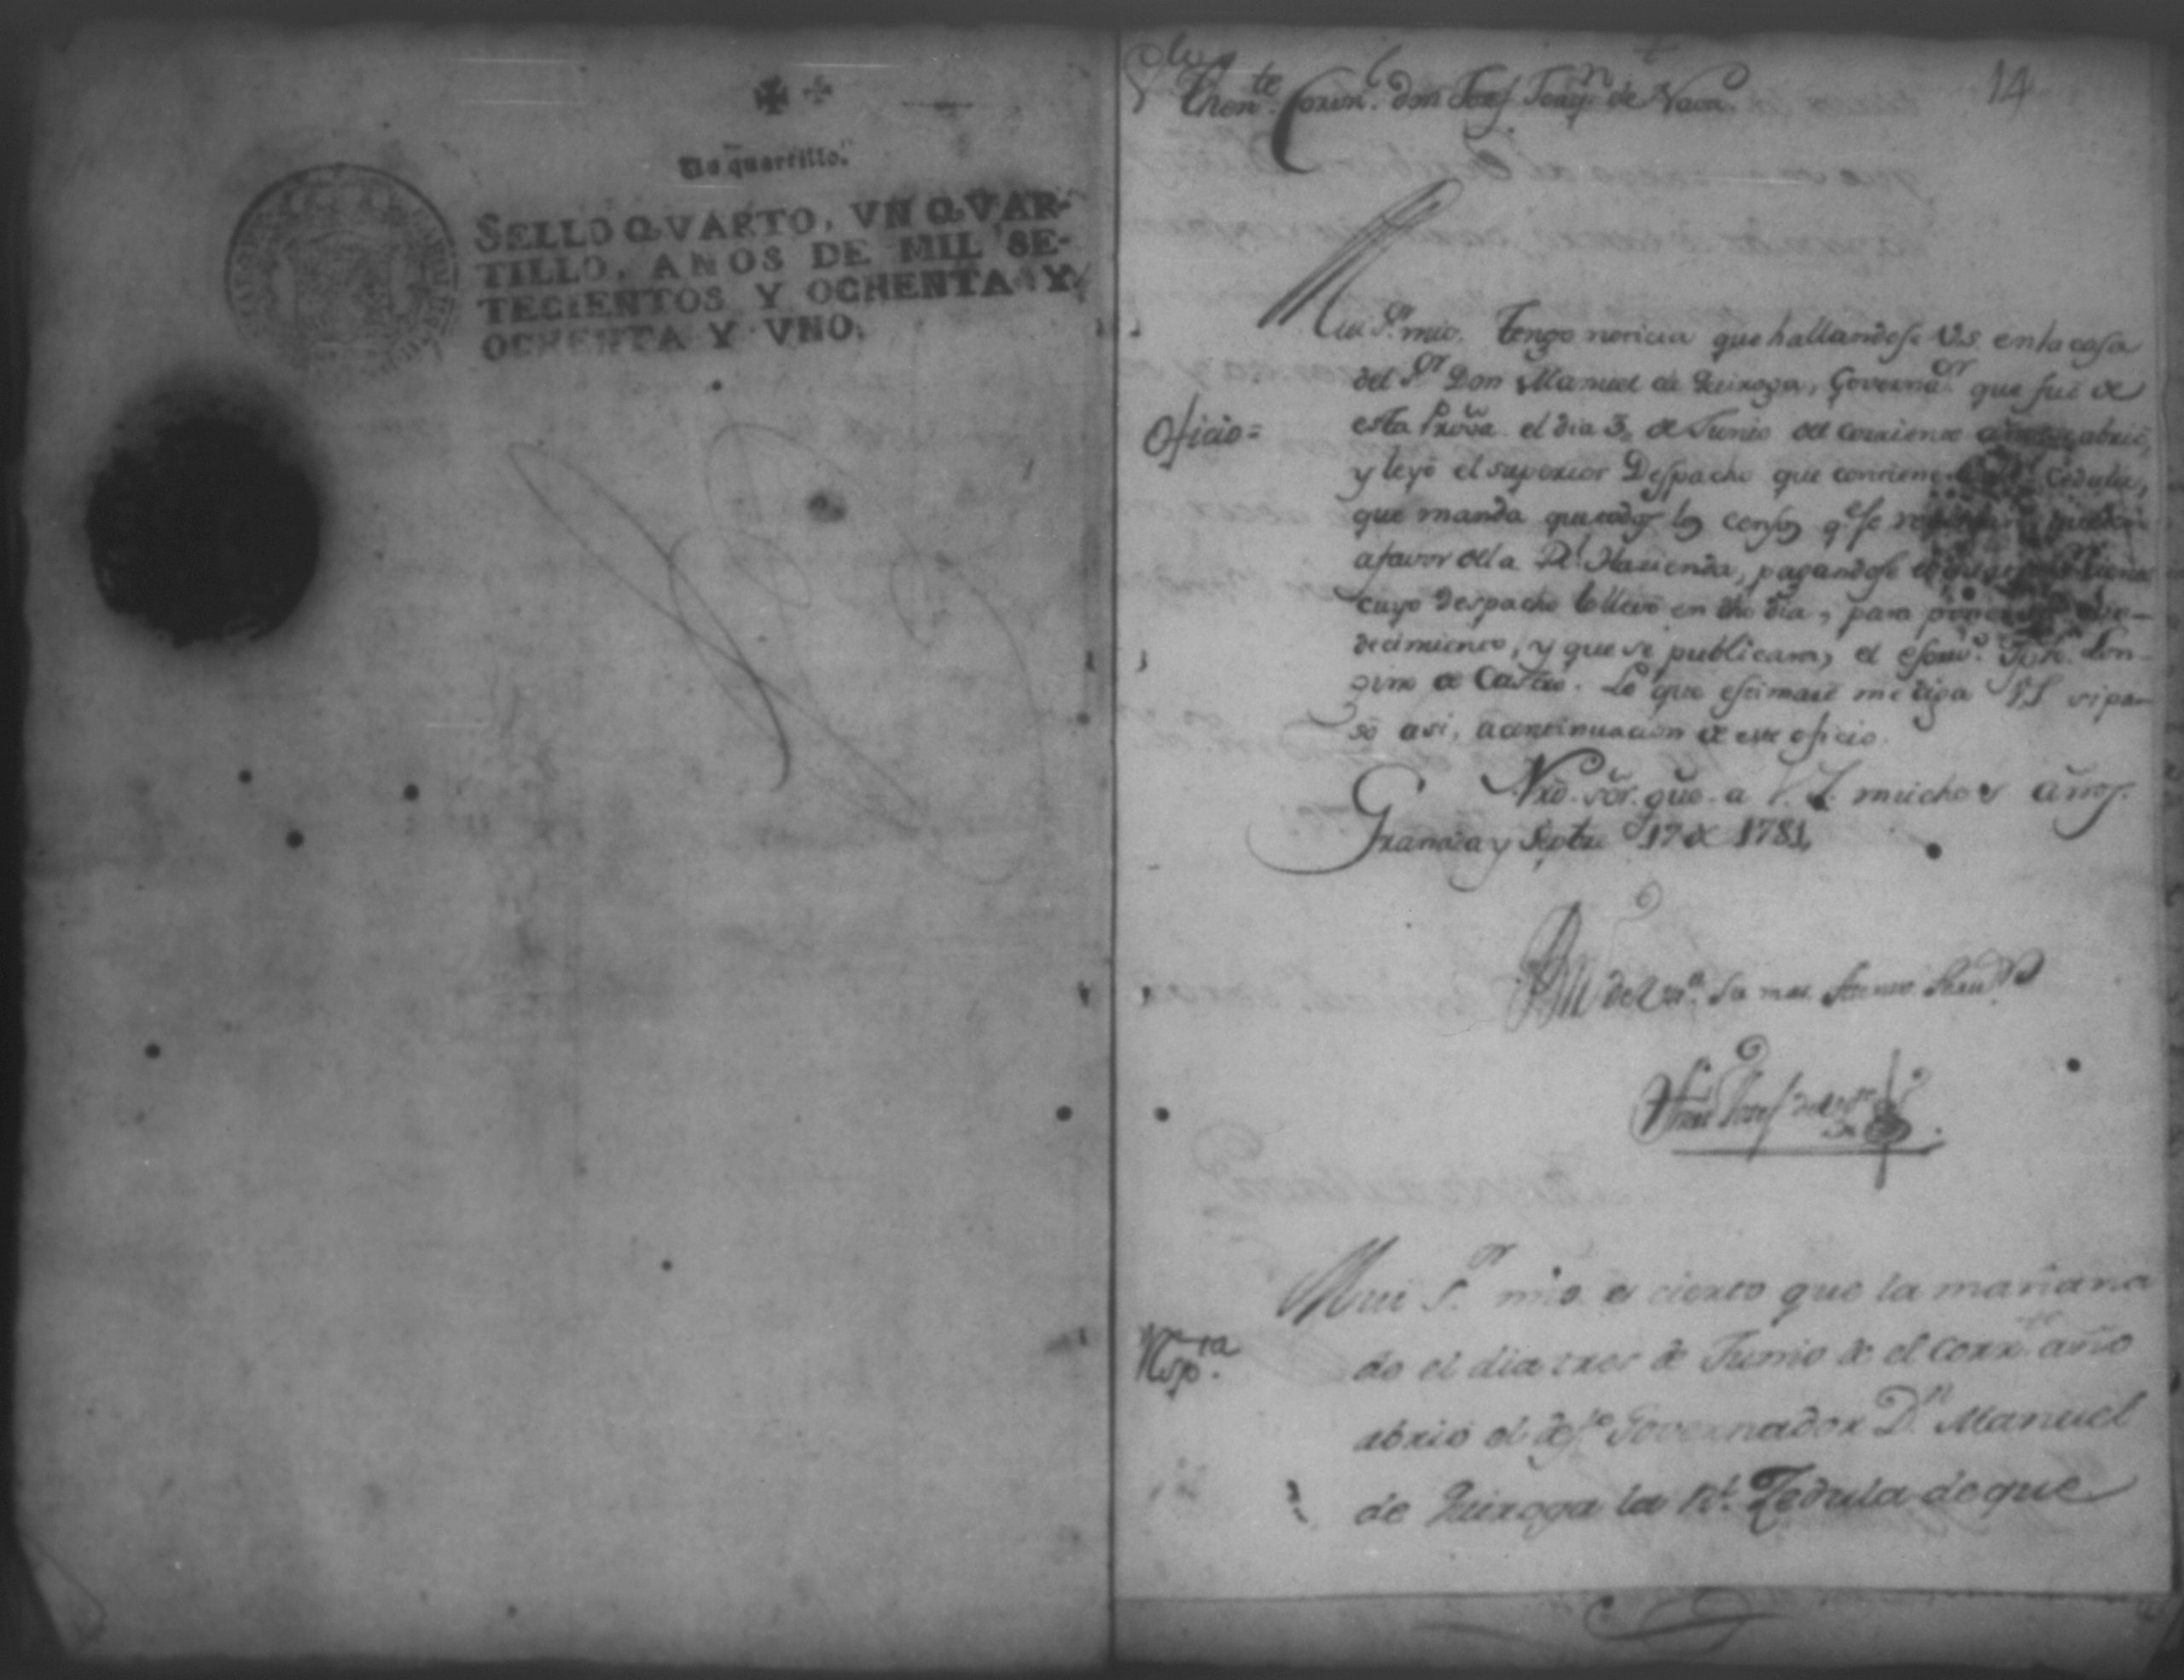 Un quartillo.
SELLO QVARTO, VN QVAR-
TILLO, AÑOS DE MIL SE-
TECIENTOS Y OCHENTA Y
OCHENTA Y VNO.
14
Then.te Coron.l don Josef Joaq.n de Nava
Mui S.r mio. Tengo noticia que hallandose V.S. en la casa
del S.or Don Manuel de Quiroga, Governa.or que fue de
Oficio=
esta Prov.a el dia 3, de Junio del corriente abrió,
y leyó el superior Despacho que contiene Cedula,
que manda que todos los q.e se
a favor de la R.l Hazienda, pagandose
cuyo despacho lo llevó en dho dia, para
decimiento, y que se publicara, el escriv.o Lon-
gino de Castro. Lo que estimaré me diga V.S. si pa-
só asi, a continuacion de este oficio.
Nrô. sór. gûe. a V.S. muchos añs.
Granada y Septre 17 de 1781,
BLM de V.S. su mas Atento Serv.or
Mui S.or mio es cierto que la mañana
Resp.ta
de el dia tres de Junio de el corr.te año
abrio el Governador D.n Manuel
de Quiroga la R.l Zedula de que